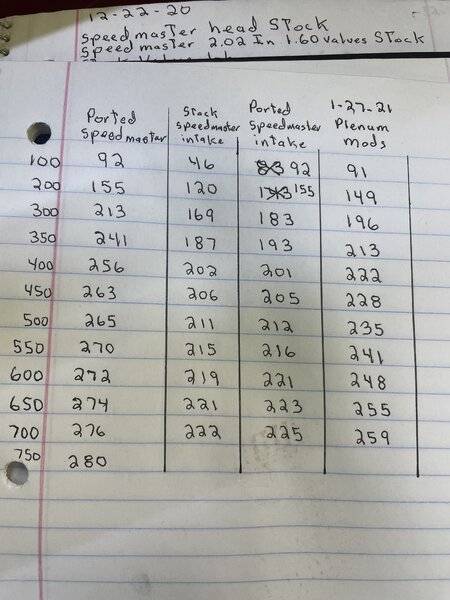 12-22-20
Speedmaster head Stock
Speedmaster 2.02 In 1.60 Valves Stock
Ported Speedmaster
Stock Speedmaster intake
Ported Speedmaster intake
1-27-21 Plenum mods
100 92 46 83 92 91
200 155 120 155 149
300 213 169 183 196
350 241 187 193 213
400 256 202 201 222
450 263 206 205 228
500 265 211 212 235
550 270 215 216 241
600 272 219 221 248
650 274 221 223 255
700 276 222 225 259
750 280